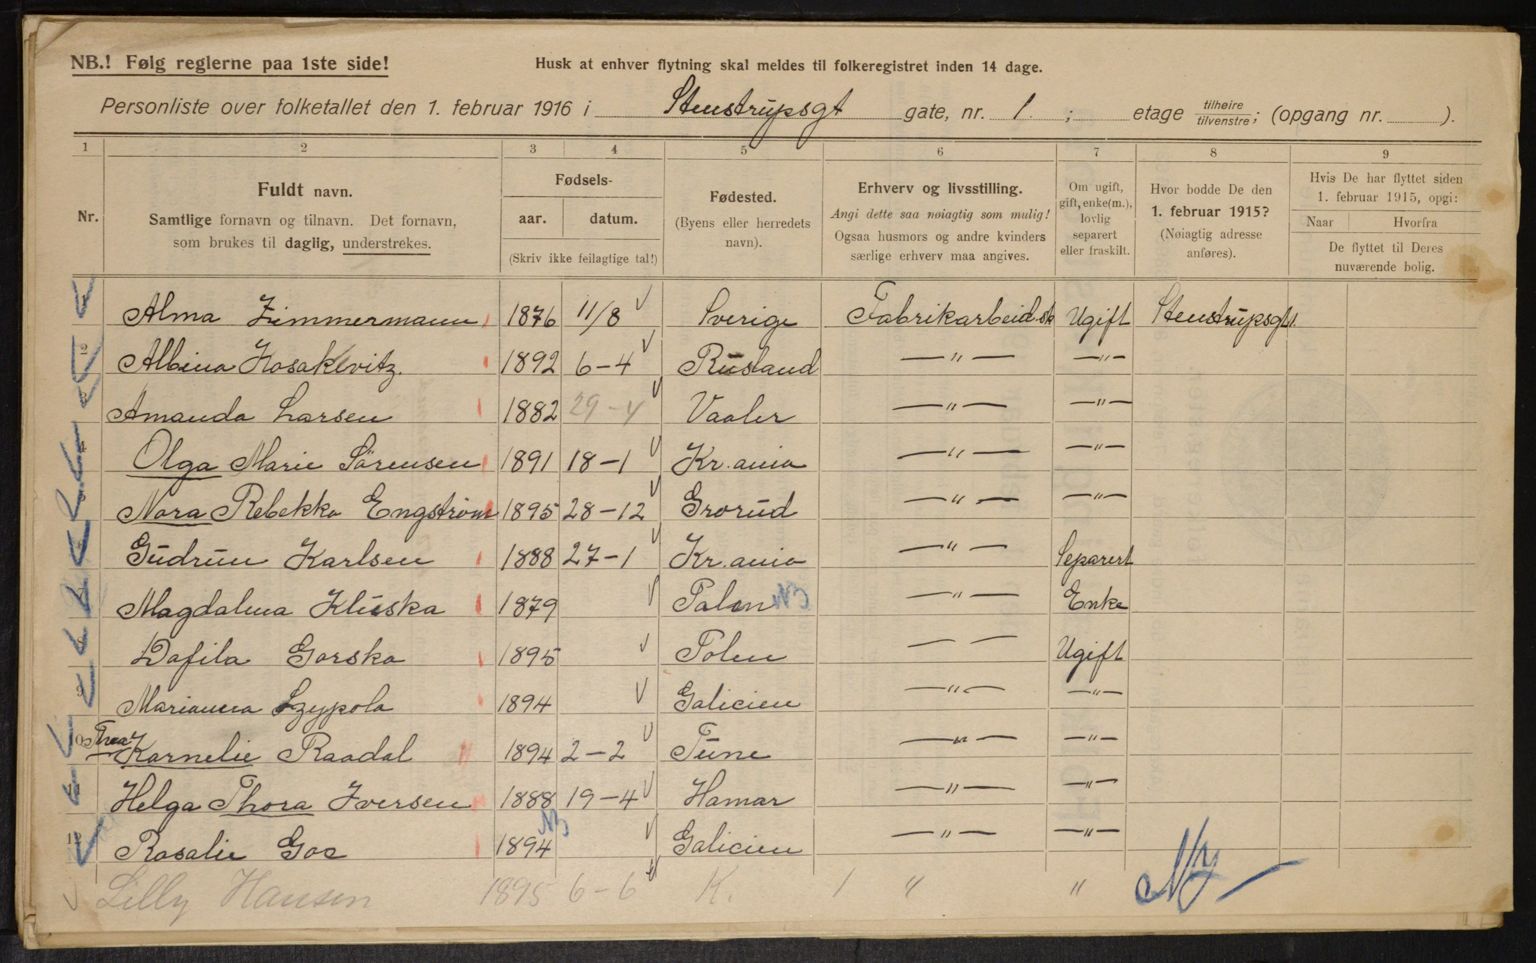 NB.! Følg reglerne paa 1ste side!
Husk at enhver flytning skal meldes til folkeregistret inden 14 dage.
Personliste over folketallet den 1. februar 1916 i Stenstrupsgt gate, nr. 1. ; etage tilhøire tilvenstre; (opgang nr. ).
1 2 3 4 5 6 7 8 9
Nr.
Fuldt navn.
Samtlige fornavn og tilnavn. Det fornavn,
som brukes til daglig, understrekes.
Fødsels-
aar. datum.
(Skriv ikke feilagtige tal!)
Fødested.
(Byens eller herredets
navn).
Erhverv og livsstilling.
Angi dette saa nøiagtig som mulig!
Ogsaa husmors og andre kvinders
særlige erhverv maa angives.
Om ugift,
gift, enke(m.),
lovlig
separert
eller fraskilt.
Hvor bodde De den
1. februar 1915?
(Nøiagtig adresse
anføres).
Hvis De har flyttet siden
1. februar 1915, opgi:
Naar Hvorfra
De flyttet til Deres
nuværende bolig.
Alma Zimmermann 1876 11/8 Sverige Fabrikarbeid.sk Ugift Stenstrupsgt 1.
2 Albina Kosakevitz 1892 6-4 Rusland -"- -"-
Amanda Larsen 1882 29-4 Vaaler -"- -"-
Olga Marie Sörensen 1891 18-1 Kr.ania -"- -"-
Nora Rebekka Engstrøm 1895 28-12 Grorud -"- -"-
Gudrun Karlsen 1888 27-1 Kr.ania -"- Separert
Magdalena Kluska 1879 Polen NB -"- Enke
Dofila Gorska 1895 Polen -"- Ugift
Marianna Szypola 1894 Galicien -"- -"-
Thea Kornelie Raadal 1894 2-2 Tune -"- -"-
Helga Thora Iversen 1888 19-4 Hamar -"- -"-
12 Rosalie Gac NB 1894 Galicien -"- -"-
Lilly Hansen 1895 6-6 K. 1 " "
Ny